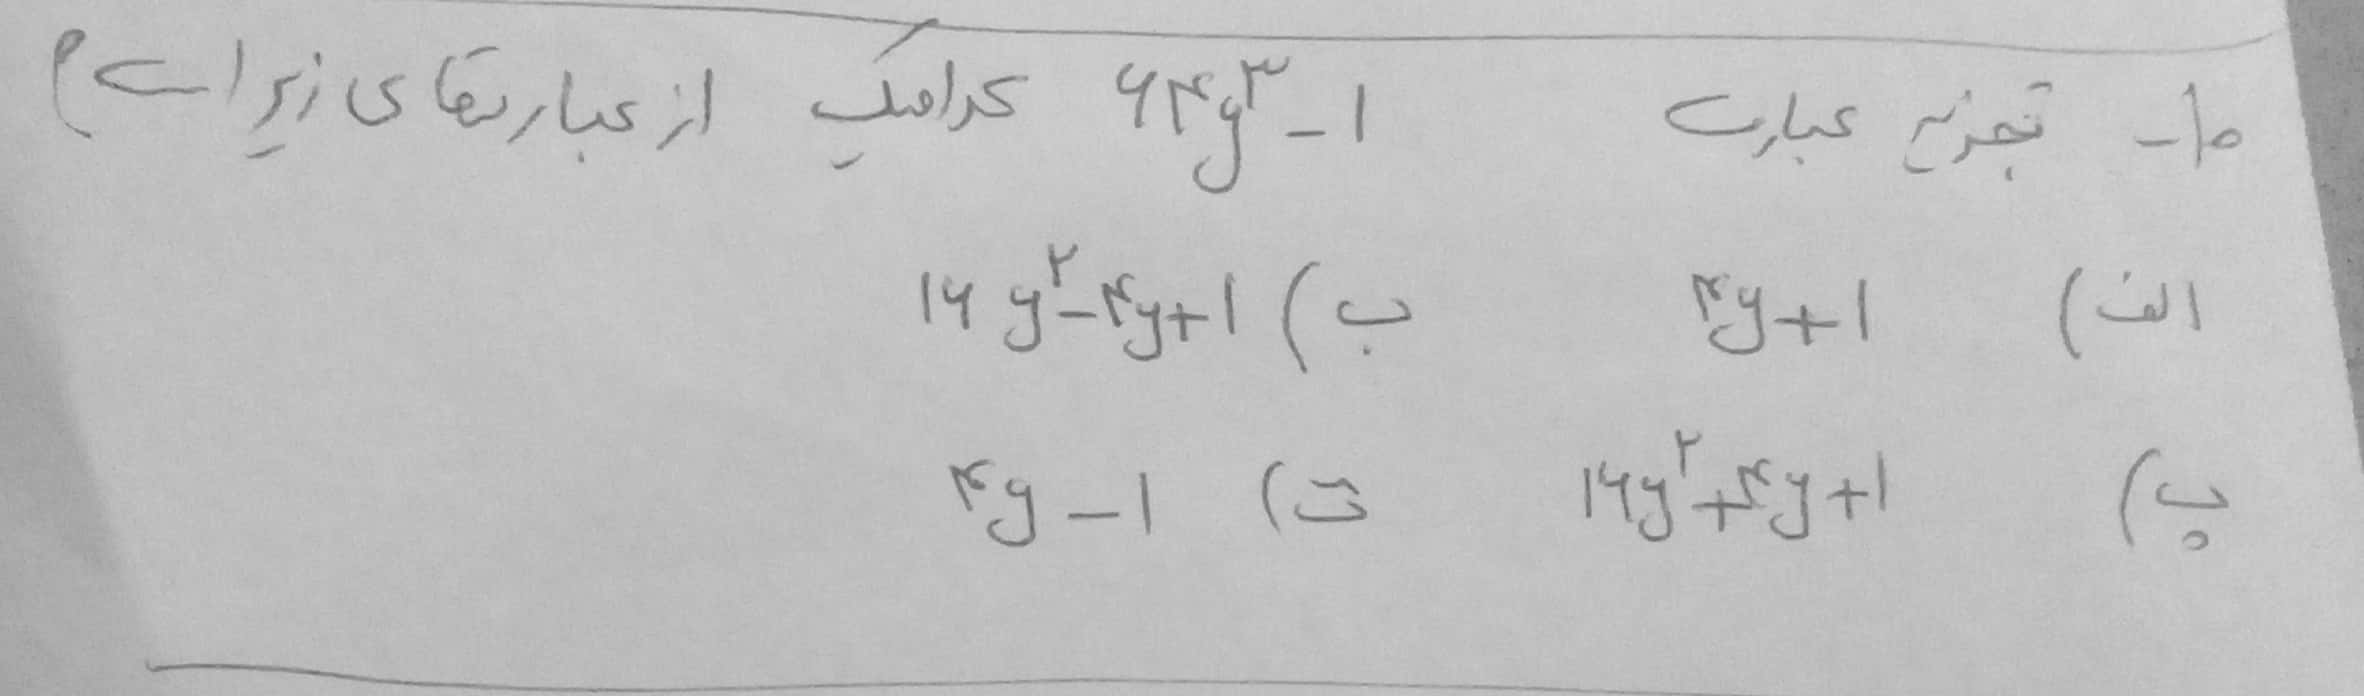 ۱۰- تجزیه عبارت ۶۴y^۳-۱ کدامیک از عبارتهای زیر است؟
الف) ۴y+۱ ب) ۱۶y^۲-۴y+۱
پ) ۱۶y^۲+۴y+۱ ت) ۴y-۱